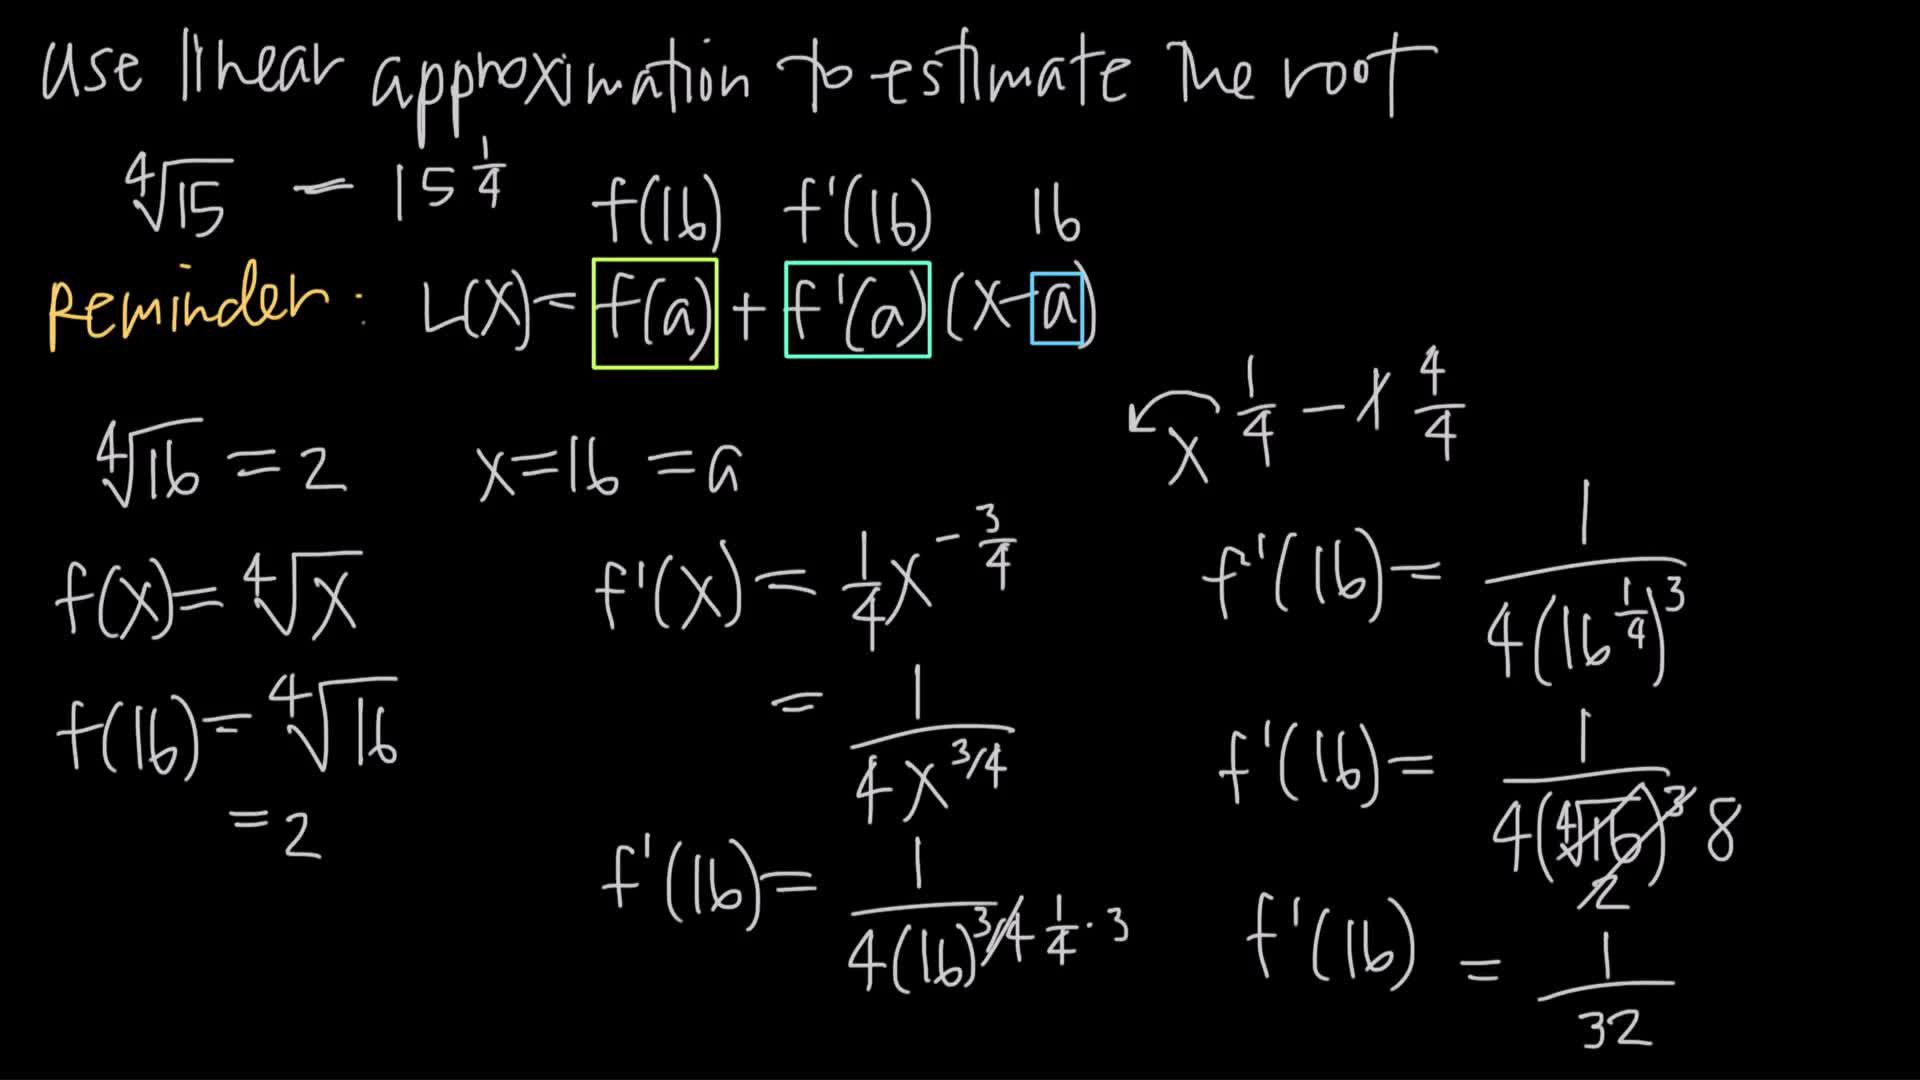 use linear approximation to estimate the root
∜15 = 15^(1/4)
f(16) f'(16) 16
Reminder: L(x) = f(a) + f'(a)(x-a)
x^(1/4) - x 4/4
∜16 = 2 x=16=a
f(x) = ∜x
f(16) = ∜16
= 2
f'(x) = 1/4 x^(-3/4)
= 1/(4x^(3/4))
f'(16) = 1/(4(16)^(3/4)) 1/4 · 3
f'(16) = 1/(4(16^(1/4))^3)
f'(16) = 1/(4(∜16)^3) 2 8
f'(16) = 1/32